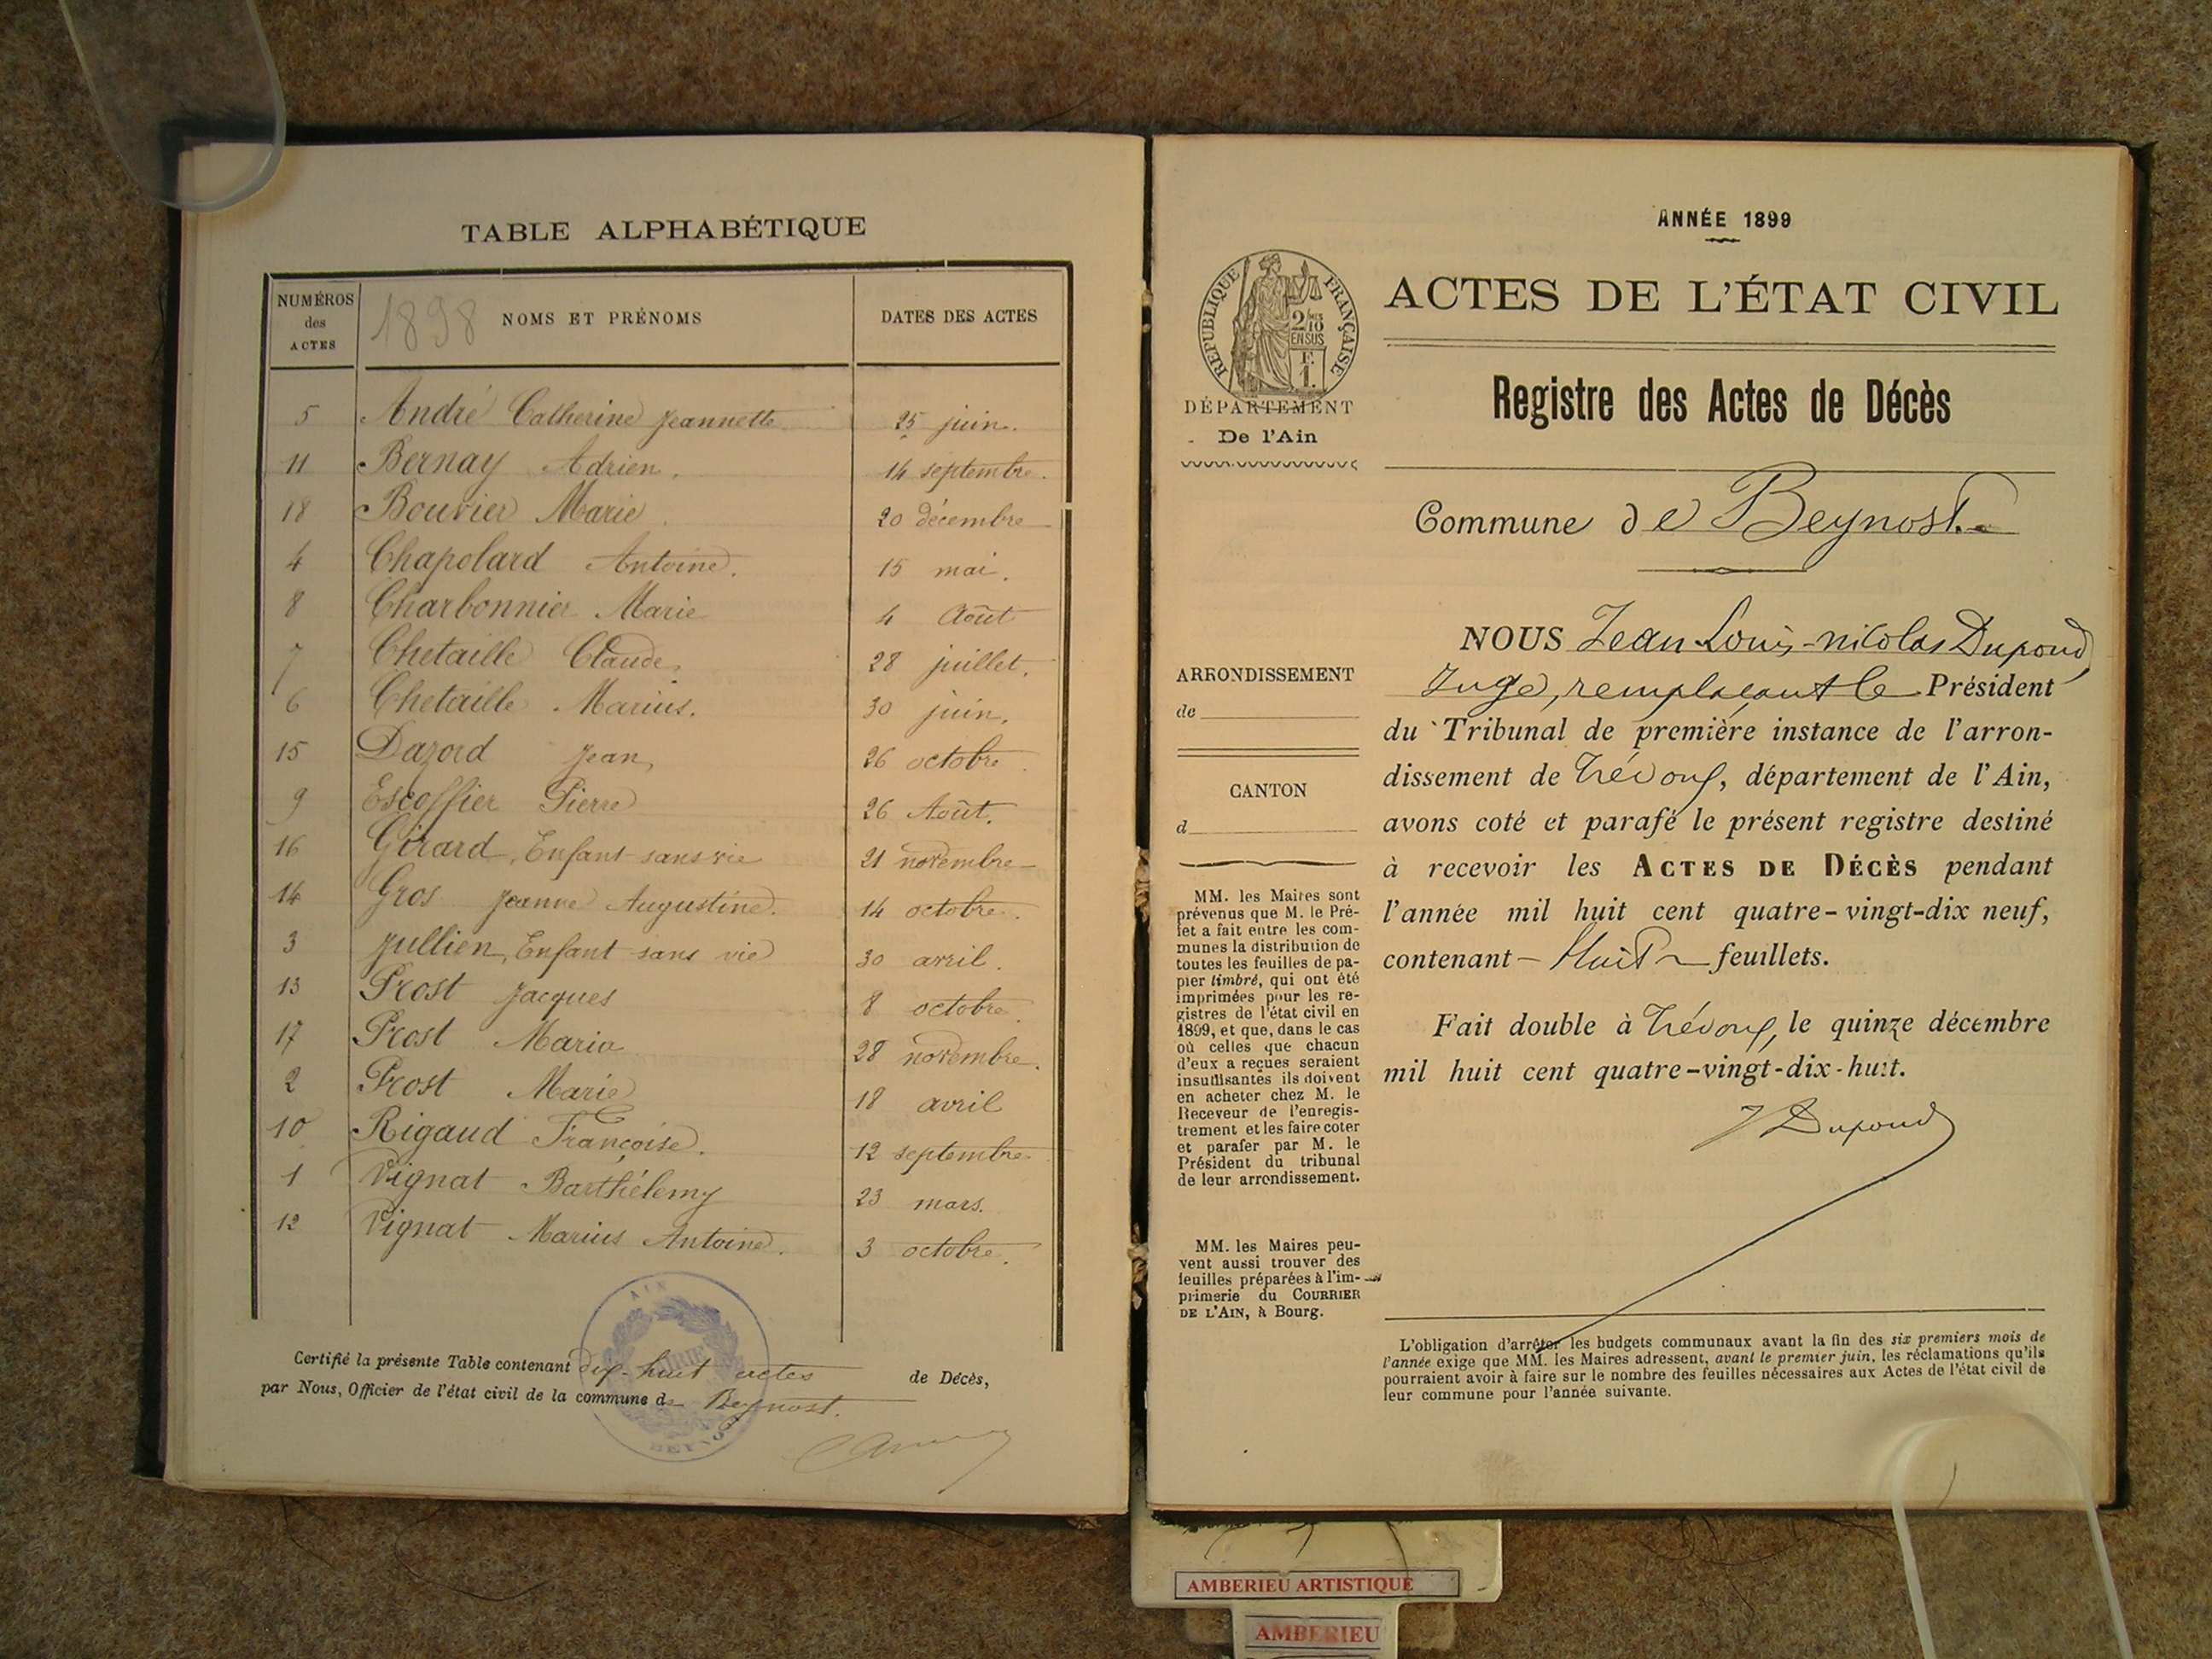 TABLE ALPHABÉTIQUE
NUMÉROS des ACTES
1898 NOMS ET PRÉNOMS
DATES DES ACTES
5 André Catherine Jeannette 25 juin.
11 Bernay Adrien. 14 septembre.
18 Bouvier Marie 20 décembre
4 Chapolard Antoine. 15 mai.
8 Charbonnier Marie 4 Août
7 Chetaille Claude. 28 juillet.
6 Chetaille Marius. 30 juin.
15 Dazord Jean 26 octobre
9 Escoffier Pierre 26 Août.
16 Girard, Enfant sans vie 21 novembre
14 Gros Jeanne Augustine. 14 octobre.
3 Jullien, Enfant sans vie 30 avril.
13 Prost Jacques 8 octobre.
17 Prost Maria 28 novembre.
2 Prost Marie 18 avril
10 Rigaud Françoise. 12 septembre
1 Vignat Barthélemy 23 mars.
12 Vignat Marius Antoine. 3 octobre.
Certifié la présente Table contenant dix-huit actes de Décès,
par Nous, Officier de l'état civil de la commune de Beynost.
AIN
MAIRIE
BEYNOST
ANNÉE 1899
REPUBLIQUE FRANÇAISE
2/10
EN SUS
F.
1.
DÉPARTEMENT
De l'Ain
ARRONDISSEMENT
de
CANTON
d
MM. les Maires sont
prévenus que M. le Pré-
fet a fait entre les com-
munes la distribution de
toutes les feuilles de pa-
pier timbré, qui ont été
imprimées pour les re-
gistres de l'état civil en
1899, et que, dans le cas
où celles que chacun
d'eux a reçues seraient
insuffisantes ils doivent
en acheter chez M. le
Receveur de l'enregis-
trement et les faire coter
et parafer par M. le
Président du tribunal
de leur arrondissement.
MM. les Maires peu-
vent aussi trouver des
feuilles préparées à l'im-
primerie du COURRIER
DE L'AIN, à Bourg.
ACTES DE L'ÉTAT CIVIL
Registre des Actes de Décès
Commune de Beynost.
NOUS Jean Louis-nicolas Dupond,
Juge, remplaçant le Président
du Tribunal de première instance de l'arron-
dissement de Trévoux, département de l'Ain,
avons coté et parafé le présent registre destiné
à recevoir les ACTES DE DÉCÈS pendant
l'année mil huit cent quatre-vingt-dix neuf,
contenant Huit feuillets.
Fait double à Trévoux, le quinze décembre
mil huit cent quatre-vingt-dix-huit.
JDupond
L'obligation d'arrêter les budgets communaux avant la fin des six premiers mois de
l'année exige que MM. les Maires adressent, avant le premier juin, les réclamations qu'ils
pourraient avoir à faire sur le nombre des feuilles nécessaires aux Actes de l'état civil de
leur commune pour l'année suivante.
AMBERIEU ARTISTIQUE
AMBERIEU